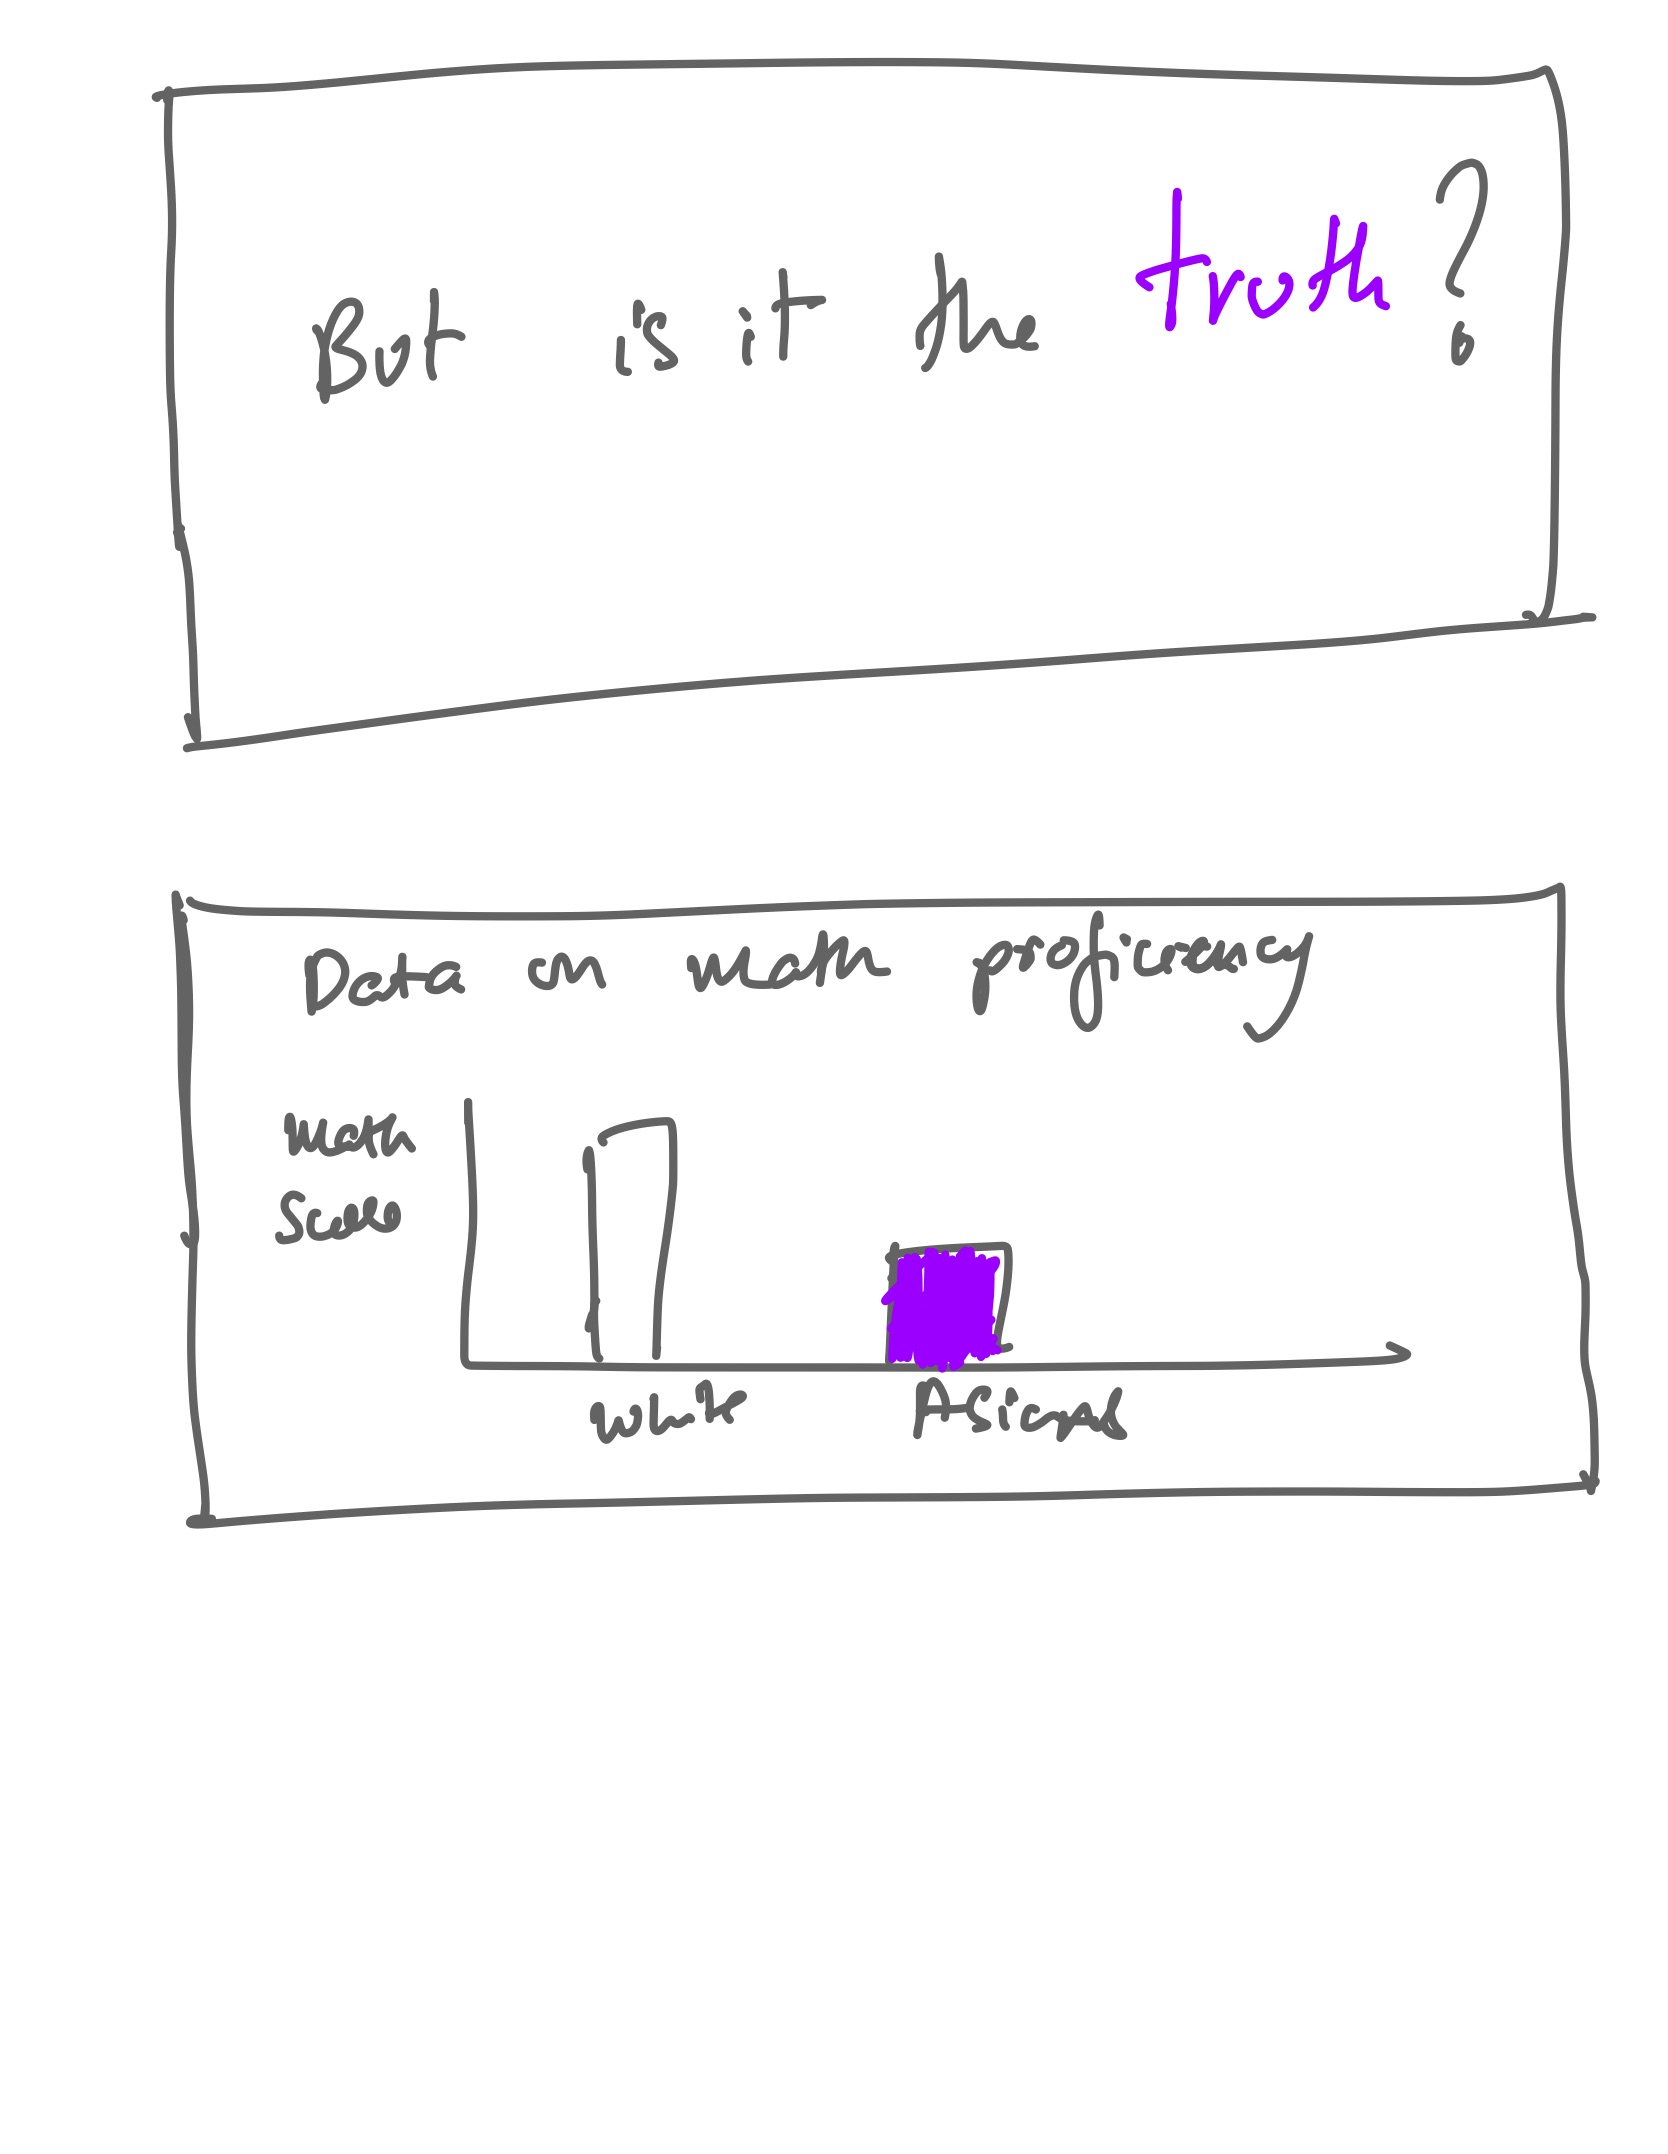 But is it the truth?
Data on math proficiency
Math
Score
White
Asians